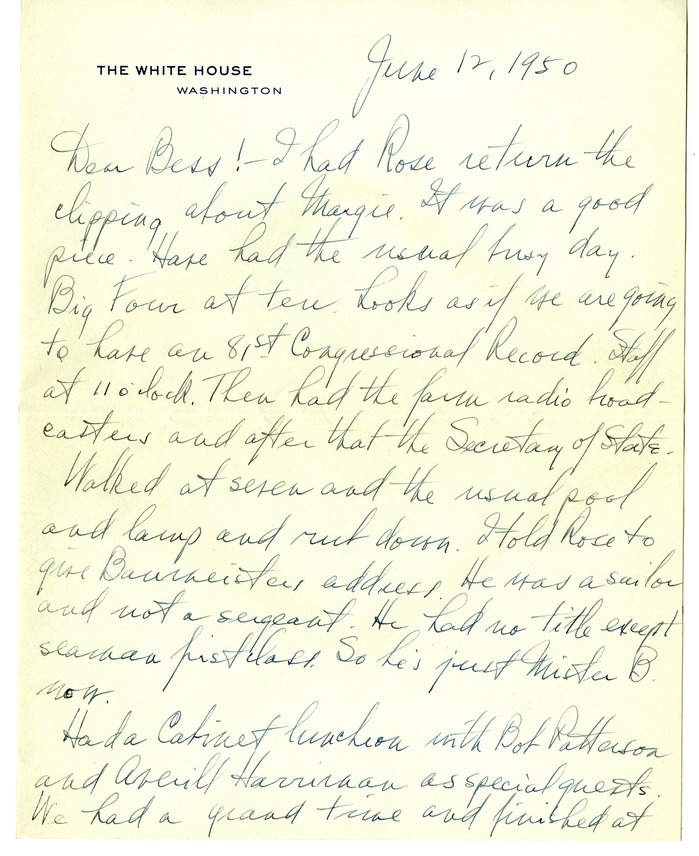 THE WHITE HOUSE
WASHINGTON
June 12, 1950
Dear Bess!– I had Rose return the
clipping about Margie. It was a good
piece. Have had the usual busy day.
Big Four at ten. Looks as if we are going
to have an 81st Congressional Record. Staff
at 11 o'clock. Then had the farm radio broad-
casters and after that the Secretary of State.
Walked at seven and the usual pool
and lamp and rub down. I told Rose to
give Baumeisters address. He was a sailor
and not a sergeant. He had no title except
seaman first class. So he's just Mister B.
now.
Had a Cabinet luncheon with Bob Patterson
and Averill Harriman as special guests.
We had a grand time and finished at